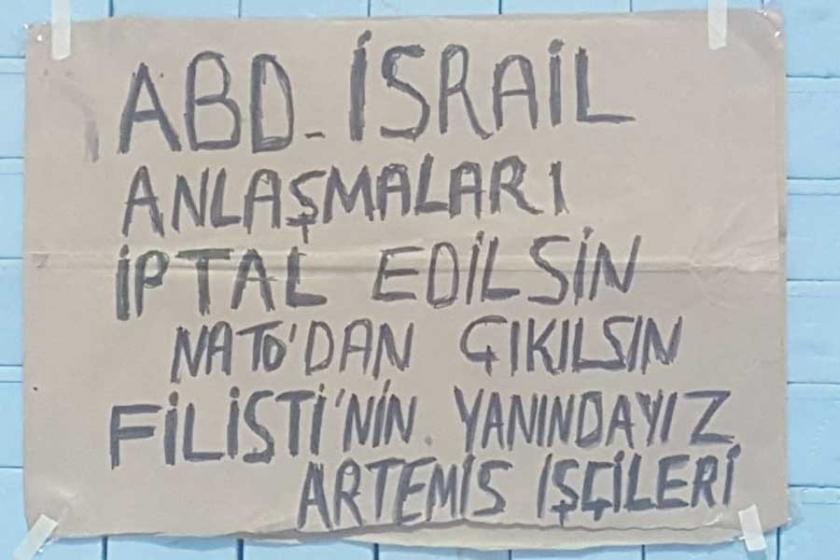 ABD_İSRAİL
ANLAŞMALARI
İPTAL EDİLSİN
NATO'DAN ÇIKILSIN
FİLİSTİ'NİN. YANINDAYIZ
ARTEMİS İŞÇİLERİ